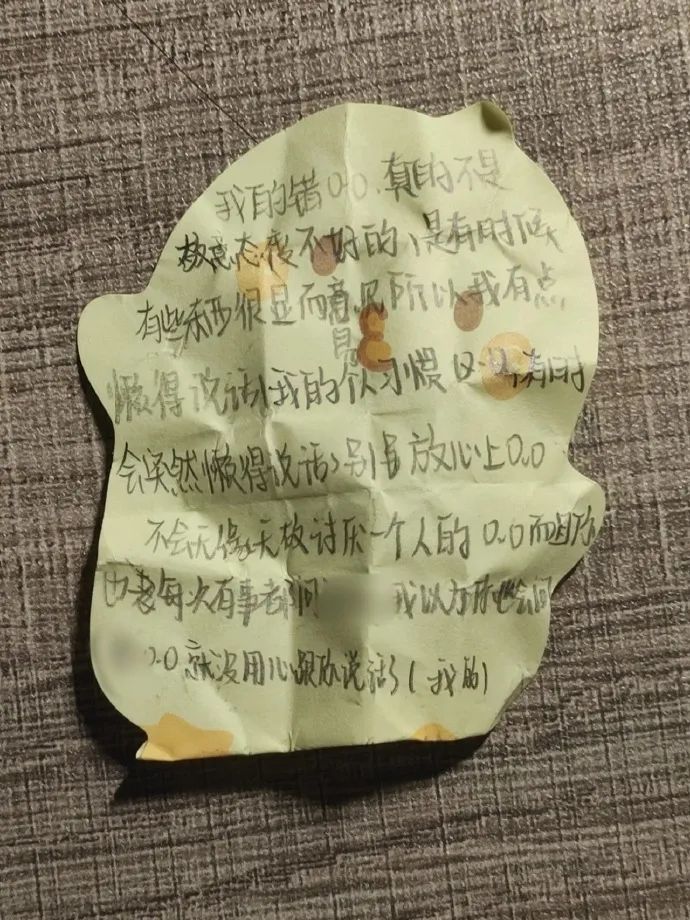 我的错0.0.真的不是
故意态度不好的,是有时候
有些东西很显而易见所以我有点
懒得说话(我的个人习惯 有时
会突然懒得说话)别 放心上0.0
不会无缘无故讨厌一个人的 0.0而且你
也老每次有事都问 我以为你也会问
0.0就没用心跟你说话了(我的)